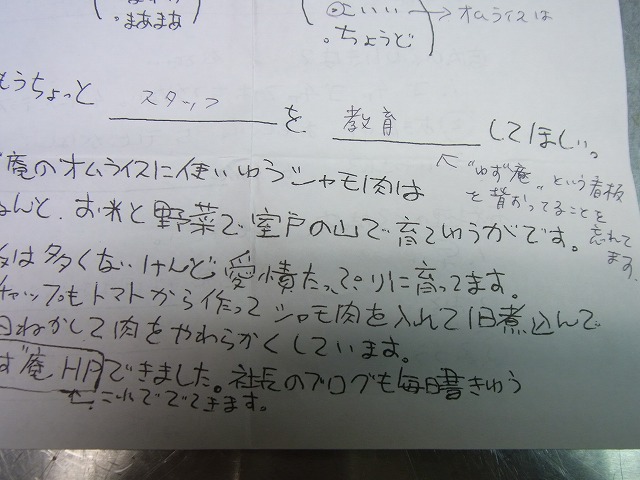 ・まあまあ
・よいいい → オムライスは
・ちょうど
もうちょっと スタッフ を 教育 してほしい。
↖"ゆず庵"という看板
を背かってることを
忘れて
ます。
庵のオムライスに使いゆうシャモ肉は
なんと、お米と野菜で室戸の山で育てゆうがです。
は多くないけんど愛情たっぷりに育ってます。
チャップもトマトから作ってシャモ肉を入れて1日煮込んで
日ねかして肉をやわらかくしています。
ず庵HPできました。社長のブログも毎日書きゆう
これででてきます。